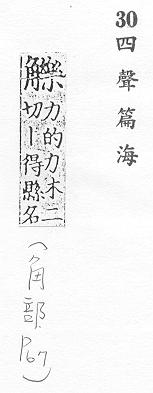 30 四聲篇海
觻力的力木二
切丨得縣名
(角部 P67)